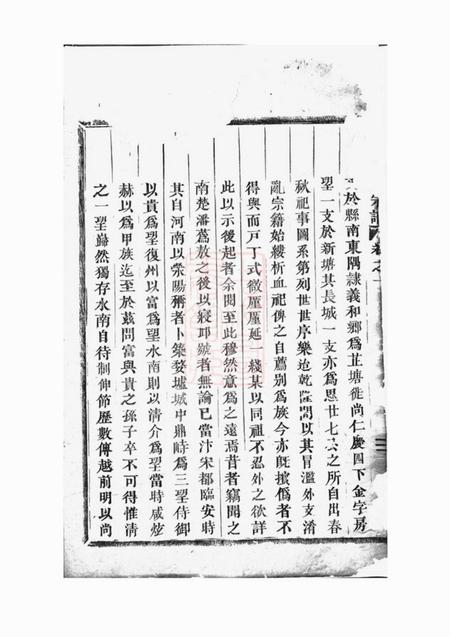 宗譜 卷之
於縣南東隅隸義和鄉爲芷塘徙尚仁慶四下金字房
望一支於新塘其長城一支亦爲恩廿七公之所自出春
秋祀事圖系第列世世序樂迨乾隆間以其冐濫外支淆
亂宗籍始縷析血祀俾之自薦别爲族今亦旣擯僞者不
得與而戸丁式微厪厪延一綫某以同祖不忍外之欲詳
此以示後起者余閱至此穆然意爲之遠焉昔者竊聞之
南楚潘蒍放之後以寢邱號者無論已當汴宋都臨安時
其自河南以滎陽稱者卜築婺墟城中鼎峙爲三望侍御
以貴爲望復州以富爲望水南則以清介爲望當時咸焃
赫以爲甲族迄至於茲問富與貴之孫子卒不可得惟淸
之一望巋然獨存水南自待制伸節歷數傳越前明以尚